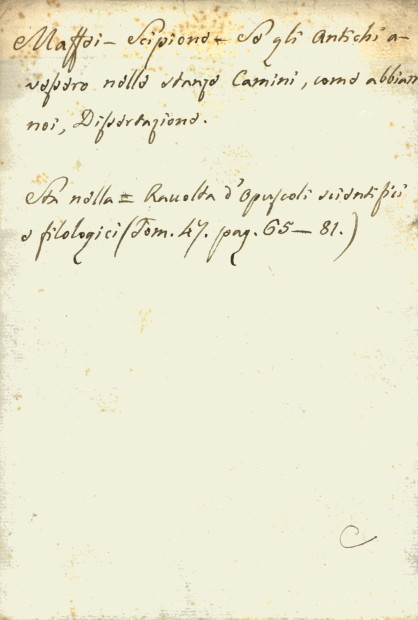 Maffei – Scipione – Se gli Antichi a-
vessero nelle stanze Camini, come abbiam
noi, Dissertazione.
Sta nella = Raccolta d'Opuscoli scientifici
e filologici (Tom. 47. pag. 65 – 81.)
C